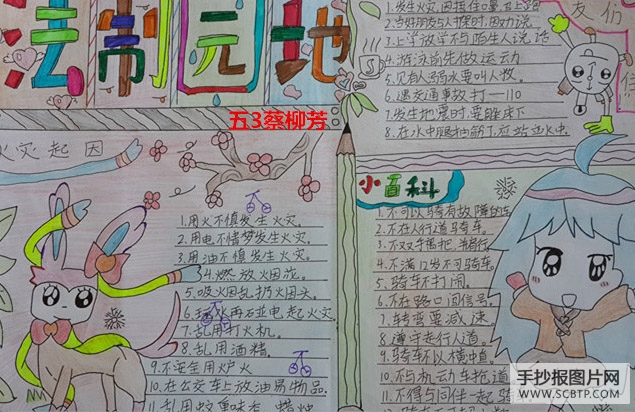 法制园地
五3蔡柳芳
友们
1.发生火灾,因捂住口鼻
2.当好朋友与人打架时,因劝说
3.上学放学不与陌生人说话
4.游泳前先做运动
5.见有人溺水要叫人救.
6.遇交通事故打一110
7.发生地震时,要躲床下
8.在水中腿抽筋了,应站立水中.
火灾起因
1.用火不慎发生火灾.
2.用电不慎发生火灾.
3.用油不慎发生火灾.
4.燃放烟花.
5.吸火烟乱扔烟头.
6.电起火灾
7.乱用打火机.
8.乱用酒精.
9.不安全用炉火
10.在公交车上放油易物品.
11.乱用蚊香
小百科
1.不可以骑有故障的车
2.不在人行道骑车.
3.不双手骑行
4.不满12岁不可骑车.
5.骑车不打闹.
6.不在路口闯信号
7.转弯要减速
8.遵守走行人道.
9.骑车不以横中直
10.不与机动车抢道
11.不得与同伴一起骑
手抄报图片网
WWW.SCBTP.COM